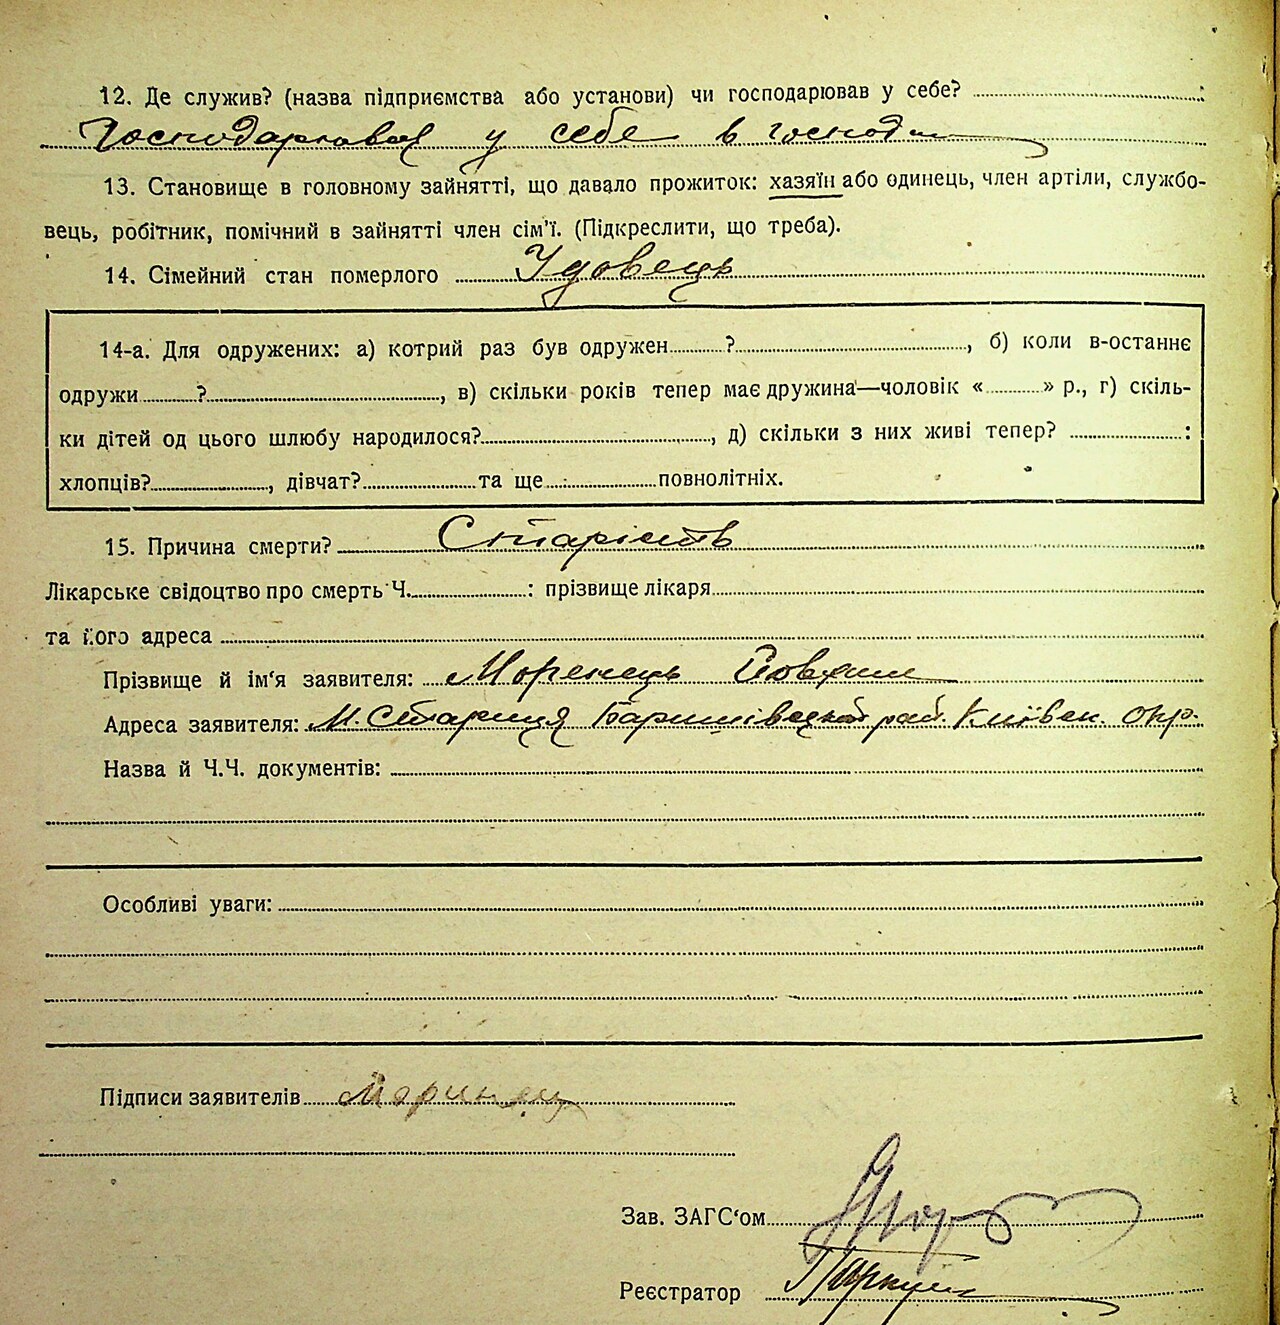 12. Де служив? (назва підприємства або установи) чи господарював у себе?
Господарював у себе в господ
13. Становище в головному зайнятті, що давало прожиток: хазяїн або одинець, член артіли, службо-
вець, робітник, помічний в зайнятті член сім'ї. (Підкреслити, що треба).
14. Сімейний стан померлого Удовець
14-а. Для одружених: а) котрий раз був одружен ?, б) коли в-останнє
одружи ?, в) скільки років тепер має дружина—чоловік « » р., г) скіль-
ки дітей од цього шлюбу народилося?, д) скільки з них живі тепер? :
хлопців?, дівчат? та ще повнолітніх.
15. Причина смерти? Старість
Лікарське свідоцтво про смерть Ч. : прізвище лікаря
та його адреса
Прізвище й ім'я заявителя: Моренець Йовхим
Адреса заявителя: М. Стариця Баришівський рай. Київск. окр.
Назва й Ч.Ч. документів:
Особливі уваги:
Підписи заявителів Маринец
Зав. ЗАГС'ом
Реєстратор